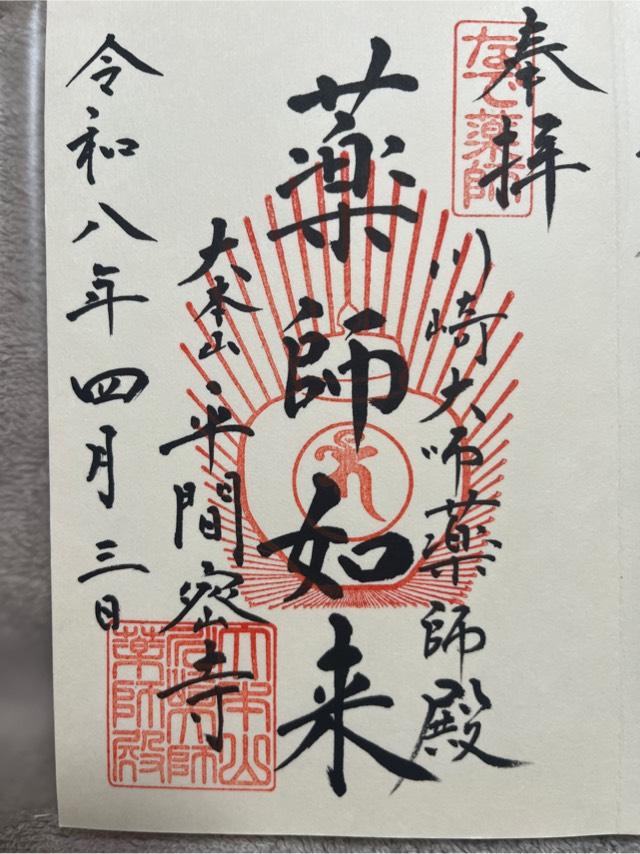 奉拝
なで薬師
川崎大師薬師殿
薬師如来
大本山
平間密寺
令和八年四月三日
大本山
薬師殿